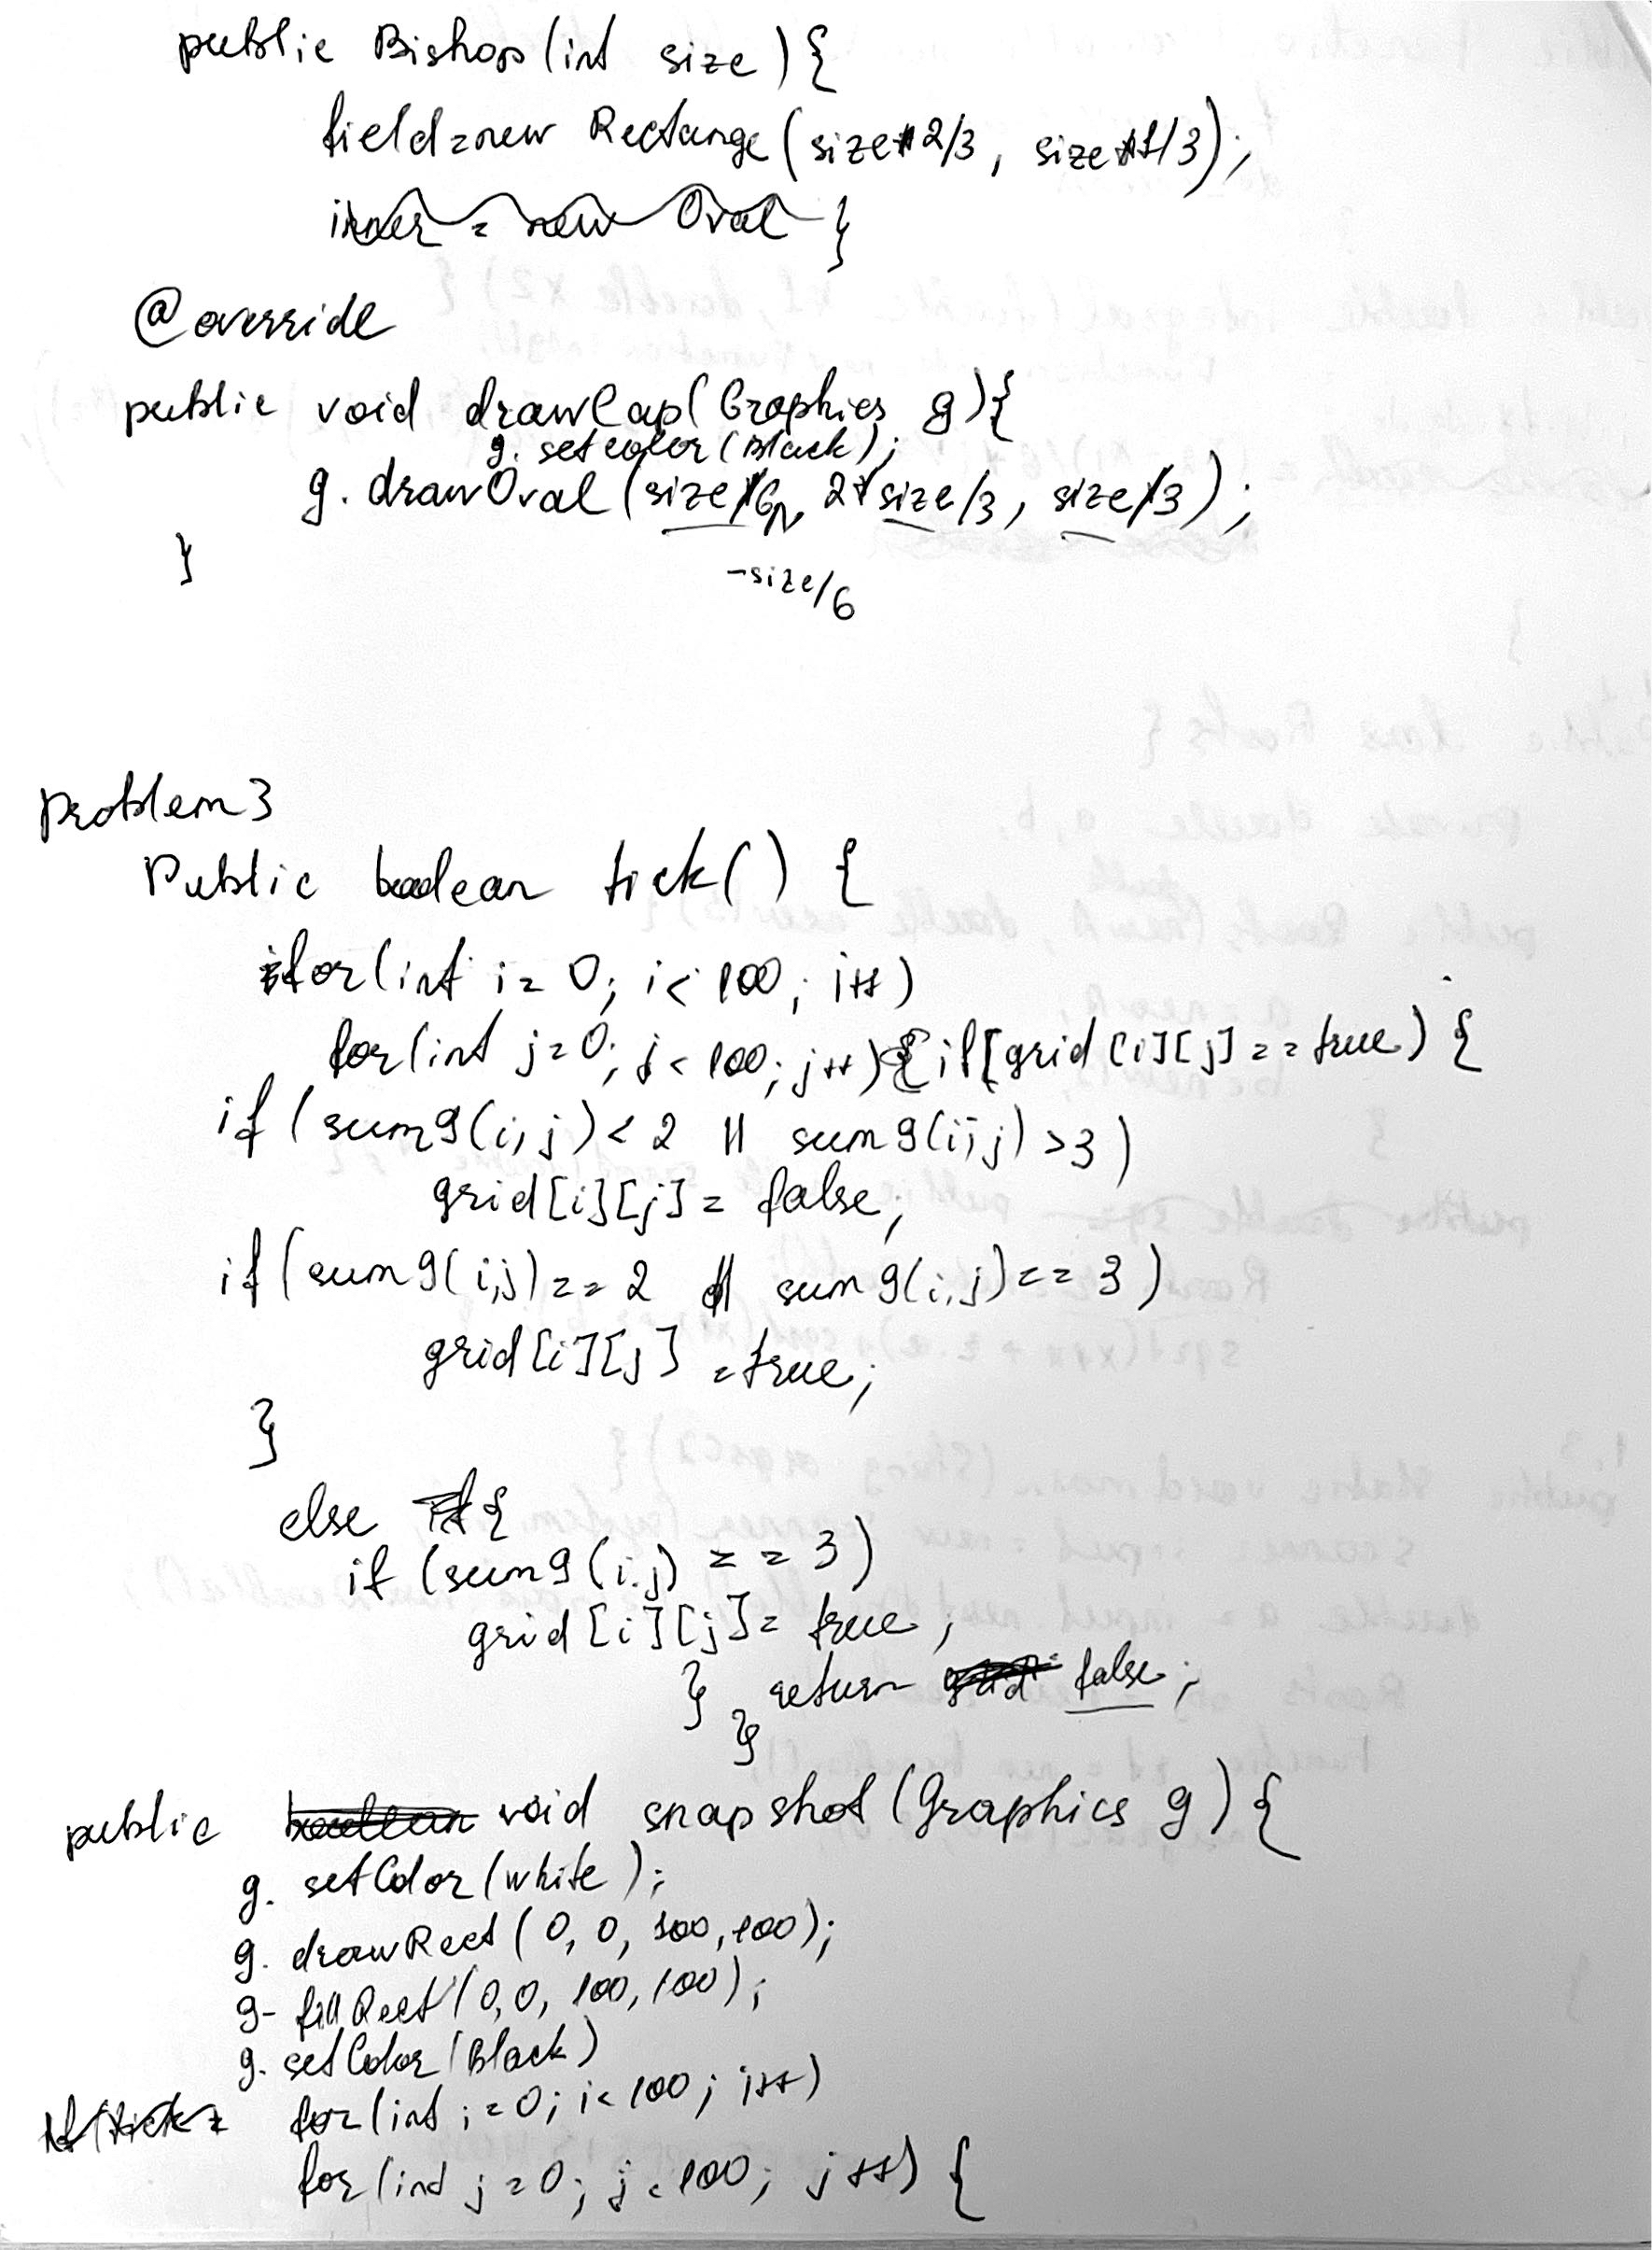 public Bishop(int size){
field=new Rectange(size*2/3, size*1/3);
inner = new Oval }
@override
public void drawCap(Graphics g){
g. setcoler(Black);
g. drawOval (size/6, 2*size/3, size/3);
}
-size/6
problem3
Public boolean tick() {
for(int i=0; i<100; i++)
for(int j=0; j<100; j++){if[grid[i][j]==true) {
if (sum9(i,j)<2 || sum9(i,j)>3)
grid[i][j]= false;
if(sum9(i,j)==2 || sum9(i,j)==3)
grid[i][j] =true;
}
else {
if (sum9(i.j) == 3)
grid[i][j]= true;
} return false;
}}
public boolean void snapshot(Graphics g){
g. setColor(white);
g. drawRect(0,0,100,100);
g- fillRect(0,0,100,100);
g. setColor(Black)
If(tick= for(int i=0; i<100; i++)
for(int j=0; j<100; j++) {